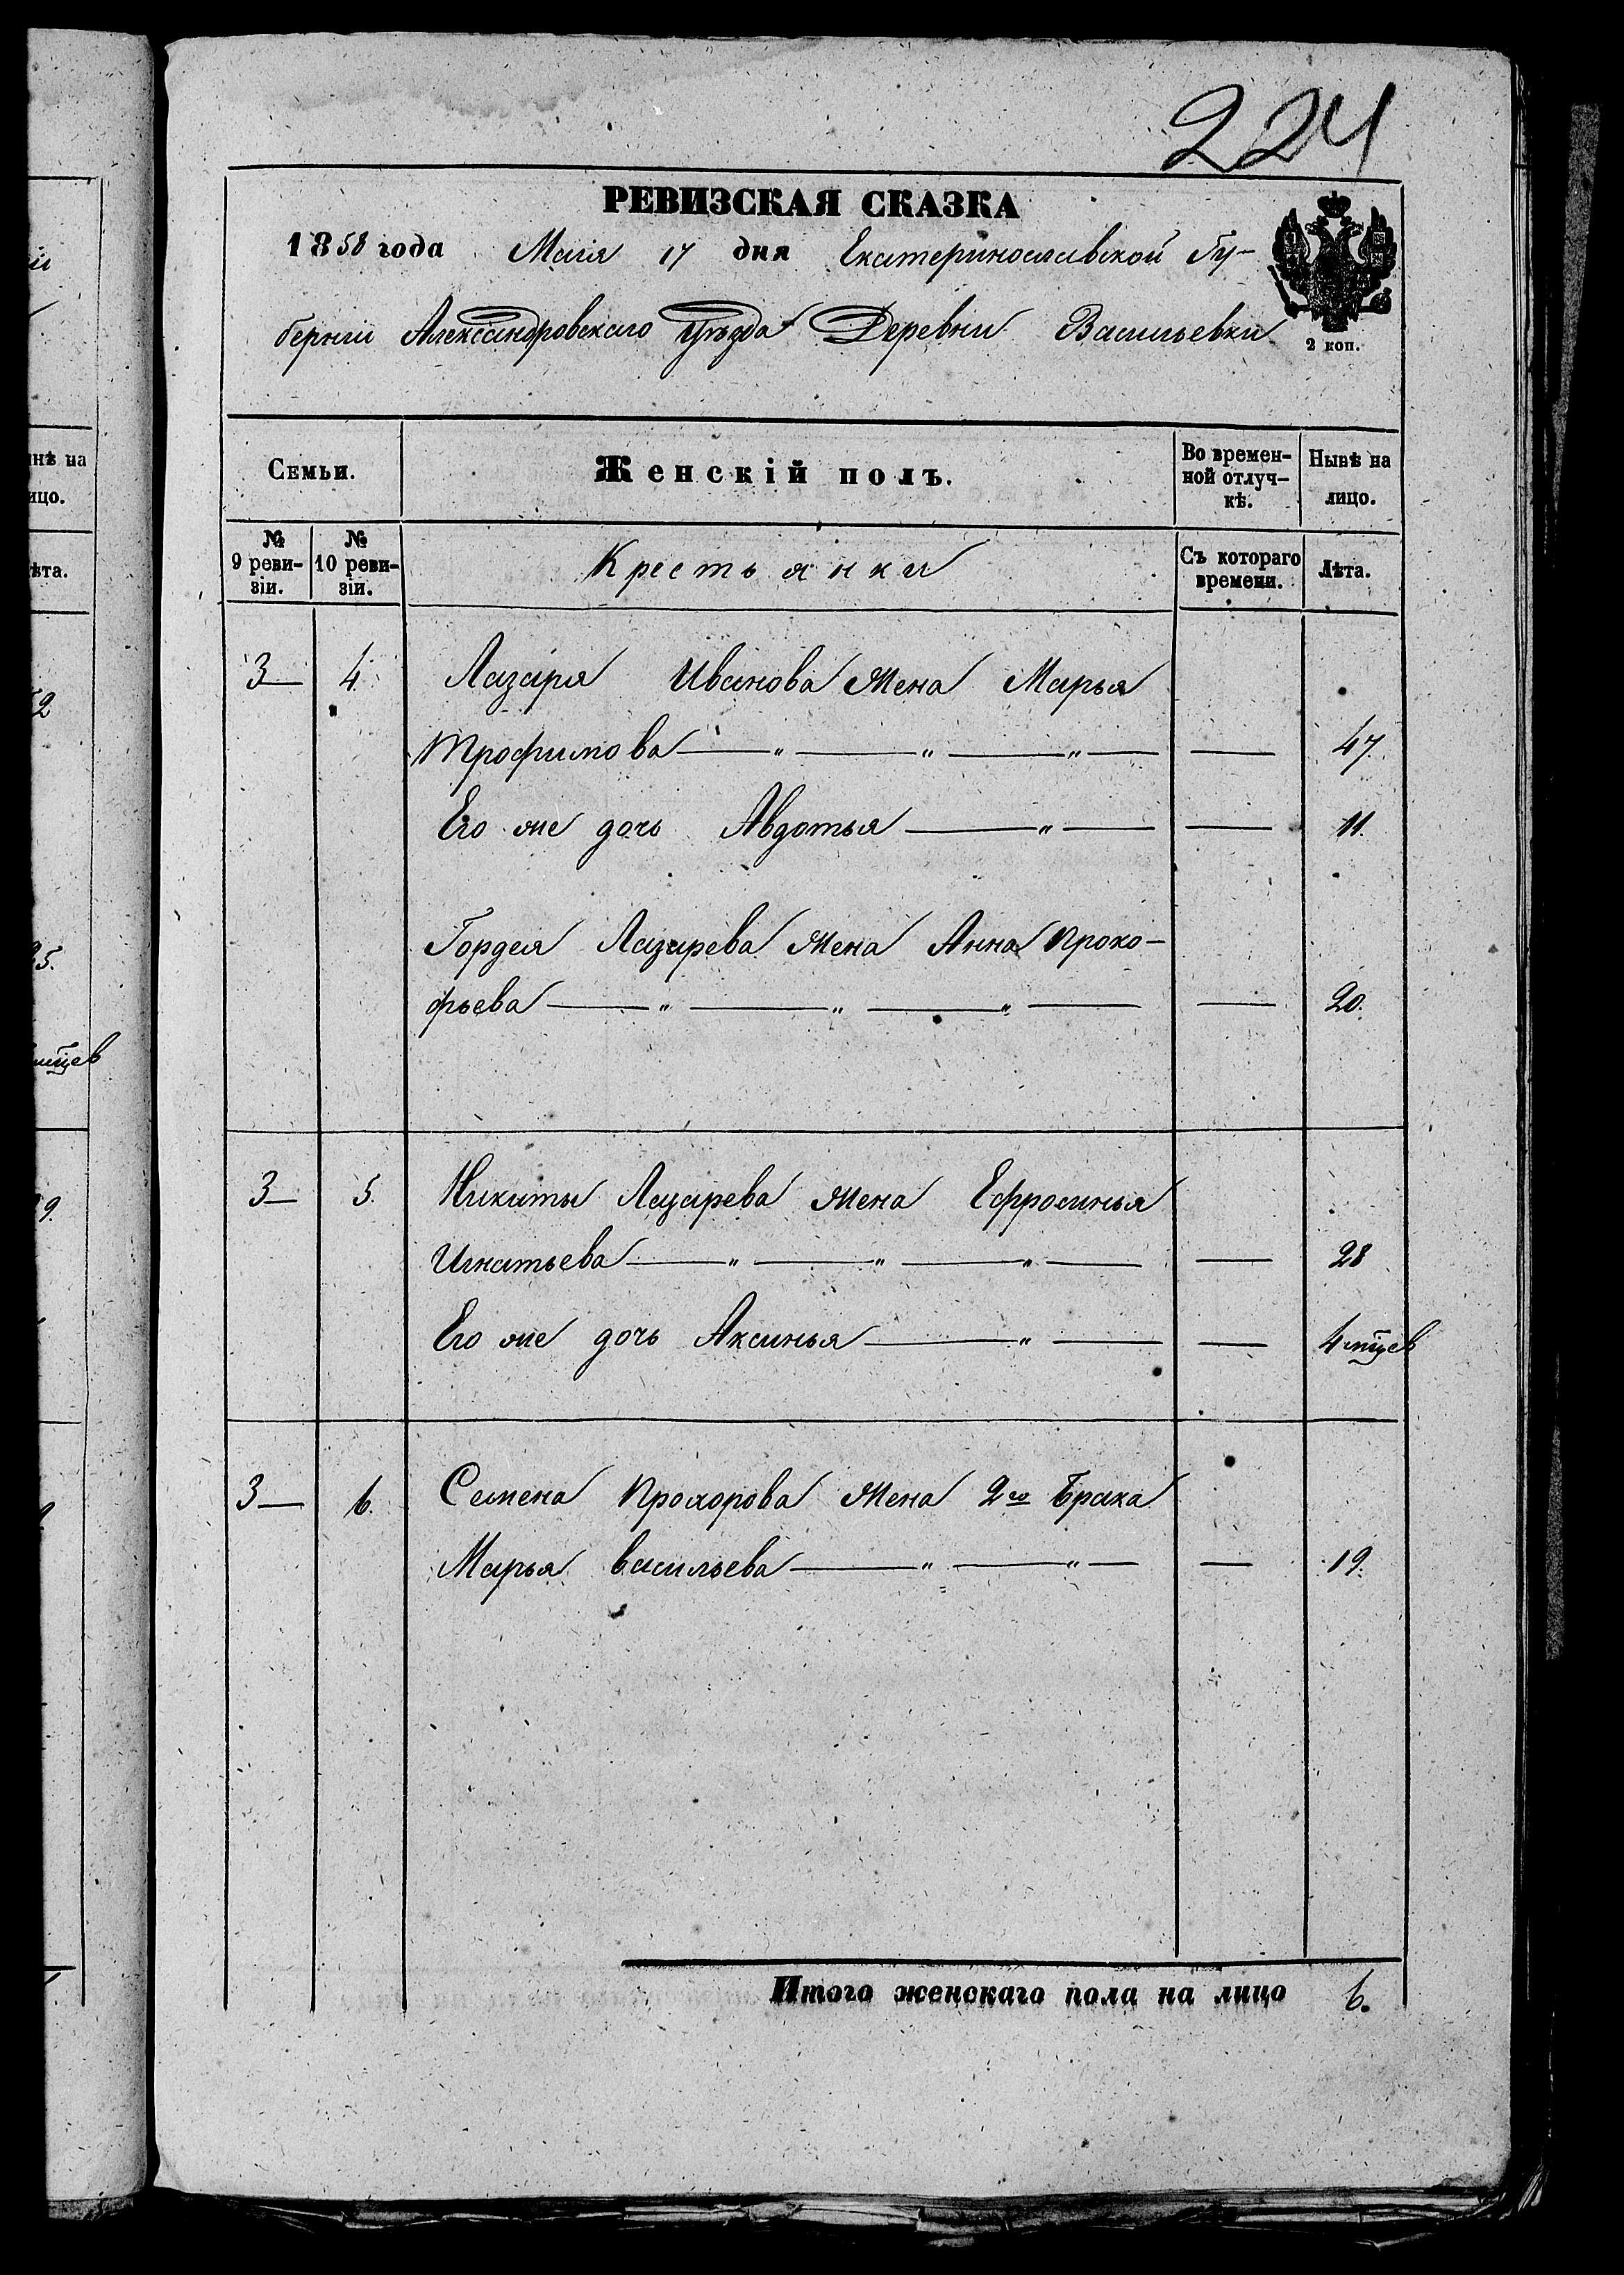 224
РЕВИЗСКАЯ СКАЗКА
1858 года Маія 17 дня Екатеринославской Гу-
берніи Александровскаго уѣзда Деревни Васильевки
2 коп.
Семьи. Женскій полъ. Во времен- Нынѣ на
ной отлуч- лицо.
кѣ.
№ № Крестьянки Съ котораго Лѣта.
9 реви- 10 реви- времени.
зіи. зіи.
3 — 4. Лазаря Иванова жена Марья
Трофимова — " — " — " — — 47.
Его же дочь Авдотья — " — — 11.
Гордея Лазарева жена Анна Проко-
фьева — " — " — " — — 20.
3 — 5. Никиты Лазарева жена Ефросинья
Игнатьева — " — " — " — — 28
Его же дочь Аксинья — " — — 4 мцев
3 — 6. Семена Прохорова жена 2го Брака
Марья Васильева — " — " — — 19.
Итого женскаго пола на лицо 6.